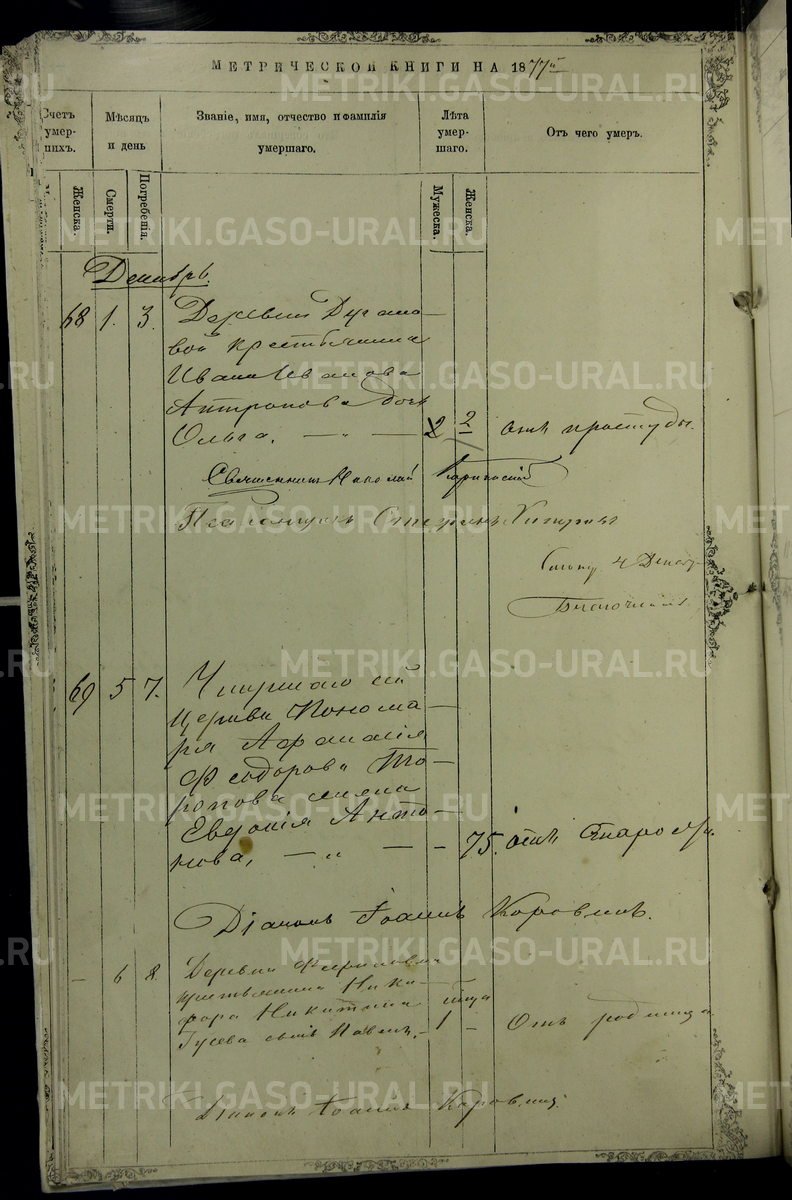 МЕТРИЧЕСКОЙ КНИГИ НА 1877й
Счетъ умершихъ.
Мѣсяцъ и день
Званіе, имя, отчество и фамилія умершаго.
Лѣта умершаго.
Отъ чего умеръ.
Женска.
Смерти.
Погребенія.
Мужеска.
Женска.
Декабрь.
68 1. 3. Деревни
вой крестьянина
Ивана Иванова
Антропова дочь
Ольга. — „ — 2 2 отъ простуды.
Священникъ Николай
Псаломщикъ Стефанъ
4 Декаб
69 5 7. Умершаго сей
церкви Понома—
ря Афанасія
Федорова То—
ропова жена
Евдокія Анто—
нова, — „ — – 75. отъ старости.
Діаконъ Іоаннъ Коровинъ.
– 6 8. Деревни
крестьянина Ники—
фора Никитина
Гусева сынъ Павелъ, – 1 – Отъ родимца.
Діаконъ Іоаннъ Коровинъ.
METRIKI.GASO-URAL.RU